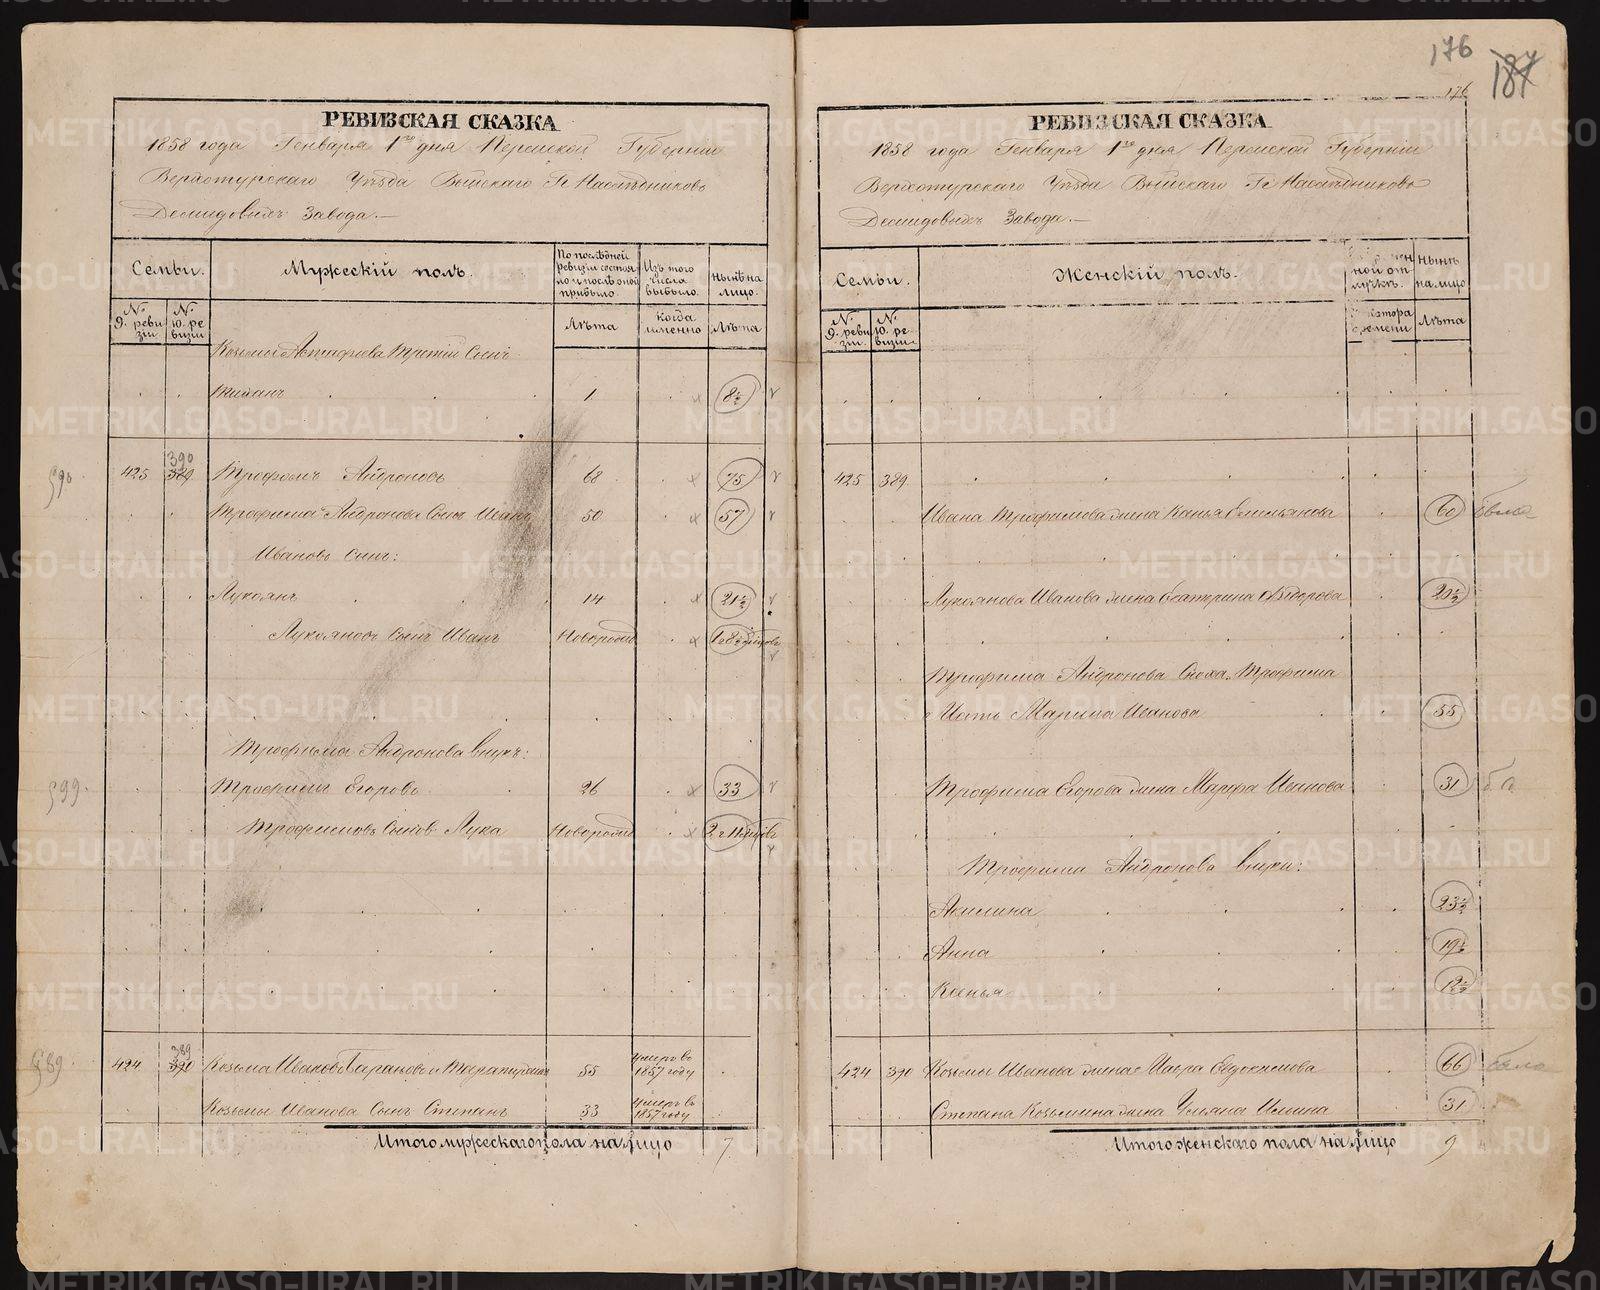 176
187
176
РЕВИЗСКАЯ СКАЗКА
1858 года Генваря 1го дня Пермской Губернии
Верхотурскаго Уѣзда Выйскаго Гг Наслѣдниковъ
Демидовыхъ Завода.—
Семьи.
Мужескій полъ.
По послѣдней ревизіи состояло и послѣ оной прибыло.
Изъ того числа выбыло.
Нынѣ на лицо.
№ 9. ревизіи
№ 10. ревизіи
Лѣта
Когда именно
Лѣта
Козьмы Третій Сынъ
1 8½
590
425 390 389 Трофимъ Андроновъ 68 75
Трофима Андронова Сынъ Иванъ 50 57
Ивановъ Сынъ:
Лукоянъ 14 21½
Лукояновъ Сынъ Иванъ Новорожд
Трофима Андронова внукъ:
599
Трофимъ Егоровъ 26 33
Трофимовъ Сынъ Лука Новорожд
589
424 389 390 Козьма Ивановъ Тарановъ 55 Умеръ въ 1857 году
Козьмы Иванова Сынъ Степанъ 33 Умеръ въ 1857 году
Итого мужескаго пола на лицо 7
РЕВИЗСКАЯ СКАЗКА
1858 года Генваря 1го дня Пермской Губерніи
Верхотурскаго Уѣзда Выйскаго Гг Наслѣдниковъ
Демидовыхъ Завода.—
Семьи.
Женскій полъ.
ной отлучкѣ.
Нынѣ на лицо
№ 9. ревизіи
№ 10. ревизіи
времени
Лѣта
425 389
Ивана Трофимова жена Емельянова 60
Лукоянова Иванова жена Екатерина Ѳедорова
Трофима Андронова Сноха, Трофима
Мать Марина Иванова 55
Трофима Егорова жена Марфа Иванова 31
Трофима Андронова внуки:
Акилина 23½
Анна 19½
Ксенья 12½
424 390 Козьмы Иванова жена Евдокимова 66
Степана Козьмина жена Ульяна Ильина 31
Итого женскаго пола на лицо 9
METRIKI.GASO-URAL.RU